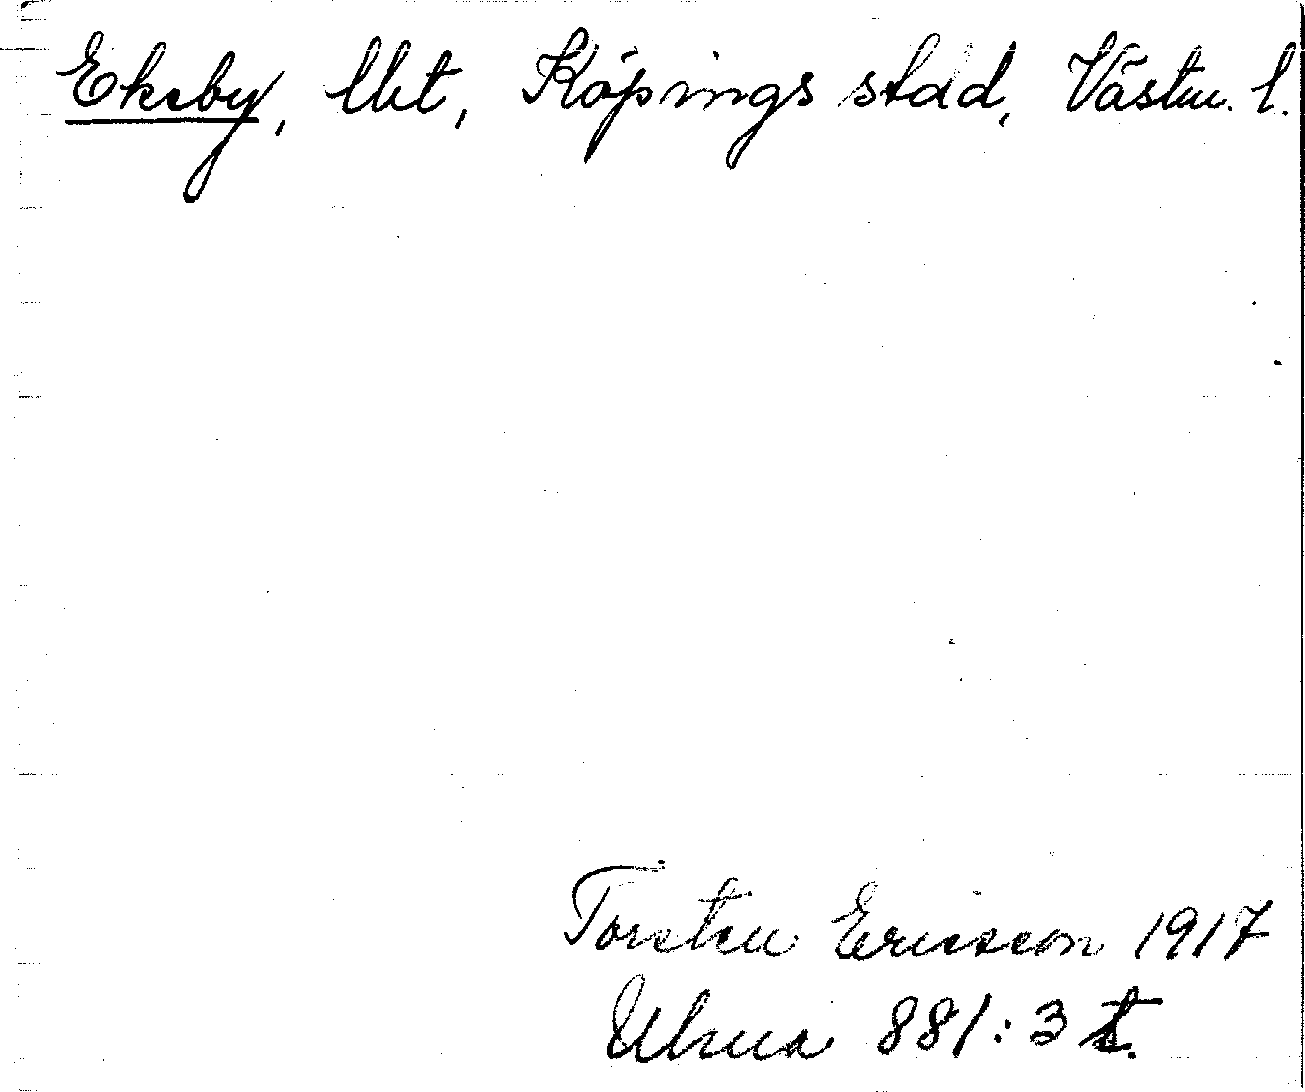 Eksby, llht, Köpings stad, Västm. l.
Torsten Ericsson 1917
Ulma 881:3 t.